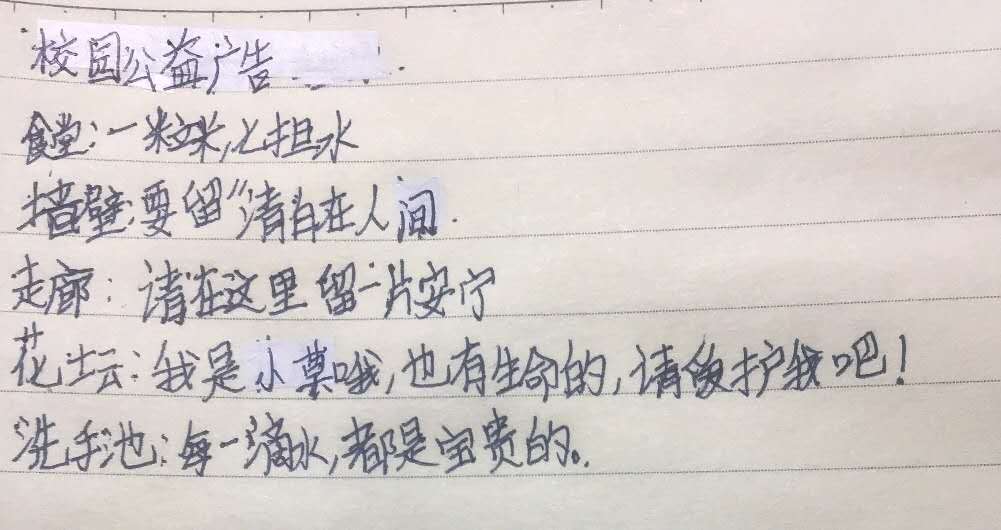 校园公益广告
食堂:一粒米,七担水
墙壁:要留"清白在人间.
走廊:请在这里留一片安宁
花坛:我是小草哦,也有生命的,请爱护我吧!
洗手池:每一滴水,都是宝贵的。